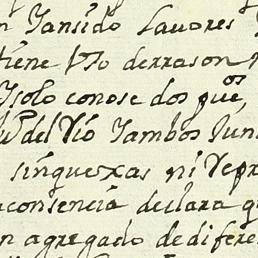 n Yansido Lauores
tiene Vso de rrason
Ysolo conose dos pues,
del Vio Yambos Jun
sinquexas ni Repr
consencia declara q
n agregado de difere